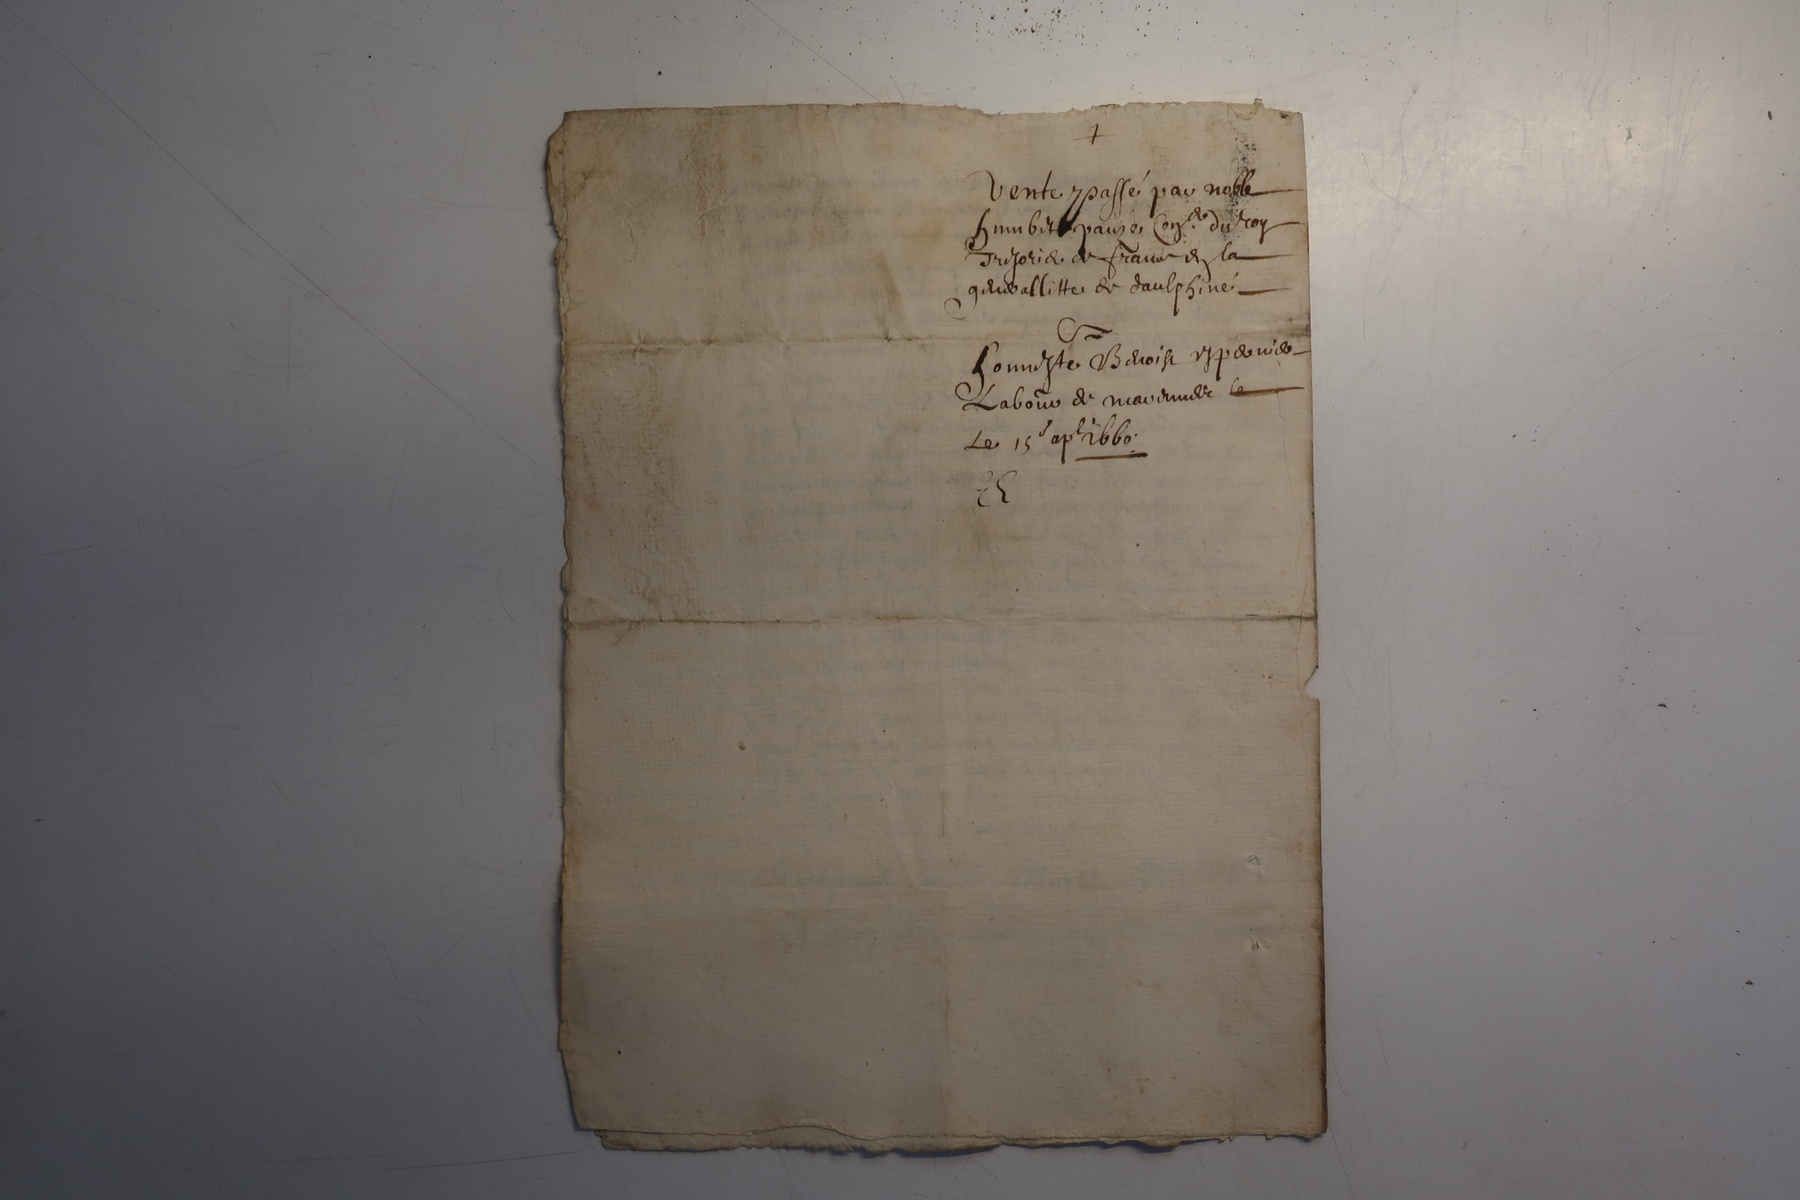 +
Vente passé par noble
humbert pause Con.er du roy
Trésorier de france en la
generallitte de dauphiné
A
honneste Benoist espernier
Labour de
Le 15e apl 1660.